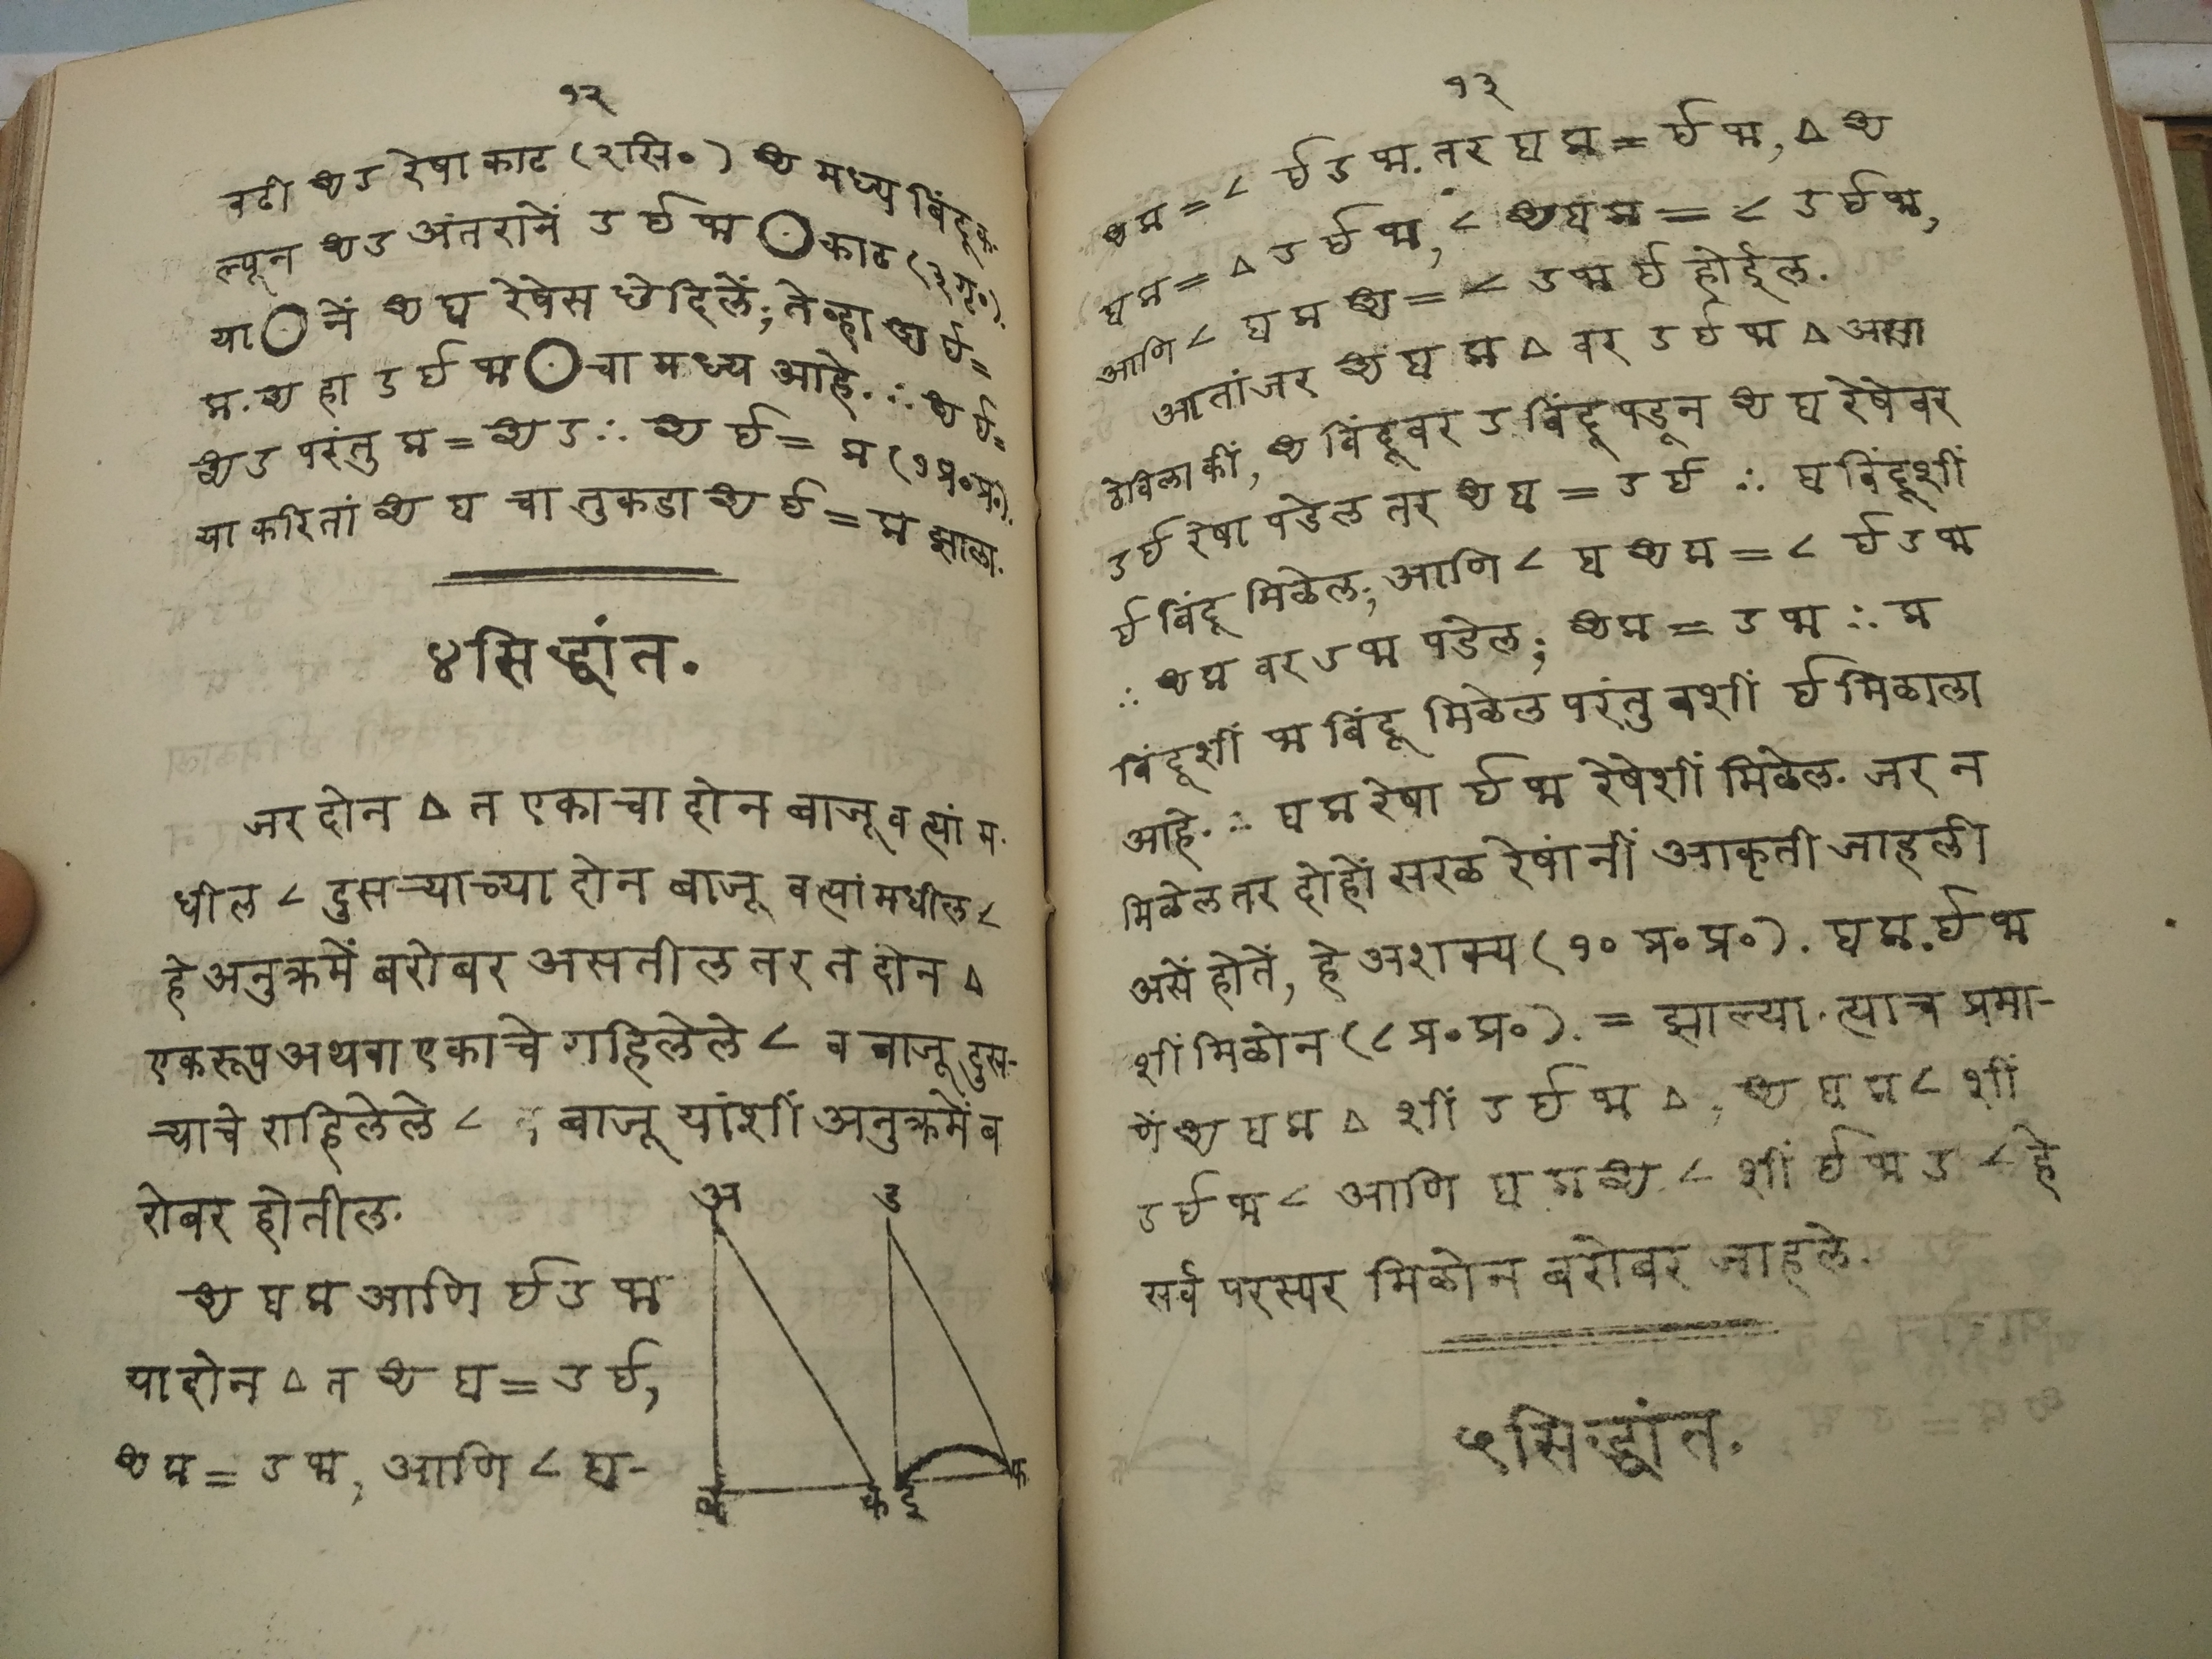 १२
वटी अ ड रेषा काट (२सि०) अ मध्य बिंदू क-
ल्पून अ ड अंतरानें ड ई फ ◯ काट (३गृ०).
या ◯ नें अ ब रेषेस छेदिलें; तेव्हा अ ई =
क. अ हा ड ई फ ◯ चा मध्य आहे. ∴ अ ई =
अ ड परंतु क = अ ड ∴ अ ई = क (१प्र०प्र०).
या करितां अ ब चा तुकडा अ ई = क झाला.
४ सिद्धांत.
जर दोन △ त एकाचा दोन बाजू व त्यां म-
धील ∠ दुसऱ्याच्या दोन बाजू व त्यांमधील ∠
हे अनुक्रमें बरोबर असतील तर त दोन △
एकरूप अथवा एकाचे राहिलेले ∠ व बाजू दुस-
ऱ्याचे राहिलेले ∠ बाजू यांशीं अनुक्रमें ब
रोबर होतील.
अ ब क आणि ई ड फ
या दोन △ त अ ब = ड ई,
अ क = ड फ, आणि ∠ ब-
अ ड
ब क ई फ
१३
अ क = ∠ ई ड फ. तर ब क = ई फ, △ अ
ब क = △ ड ई फ, ∠ अ ब क = ∠ ड ई फ,
आणि ∠ ब क अ = ∠ ड फ ई होईल.
आतां जर अ ब क △ वर ड ई फ △ असा
ठेविला कीं, अ बिंदूवर ड बिंदू पडून अ ब रेषेवर
ड ई रेषा पडेल तर अ ब = ड ई ∴ ब बिंदूशीं
ई बिंदू मिळेल; आणि ∠ ब अ क = ∠ ई ड फ
∴ अ क वर ड फ पडेल; अ क = ड फ ∴ क
बिंदूशीं फ बिंदू मिळेल परंतु बशीं ई मिळाला
आहे. ∴ ब क रेषा ई फ रेषेशीं मिळेल. जर न
मिळेल तर दोहों सरळ रेषांनीं आकृती जाहली
असें होतें, हे अशक्य (१० प्र० प्र०). ब क. ई फ
शीं मिळोन (८ प्र० प्र०). = झाल्या. त्याच प्रमा-
णें अ ब क △ शीं ड ई फ △, अ ब क ∠ शीं
ड ई फ ∠ आणि ब क अ ∠ शीं ई फ ड ∠ हे
सर्व परस्पर मिळोन बरोबर जाहले.
५ सिद्धांत.